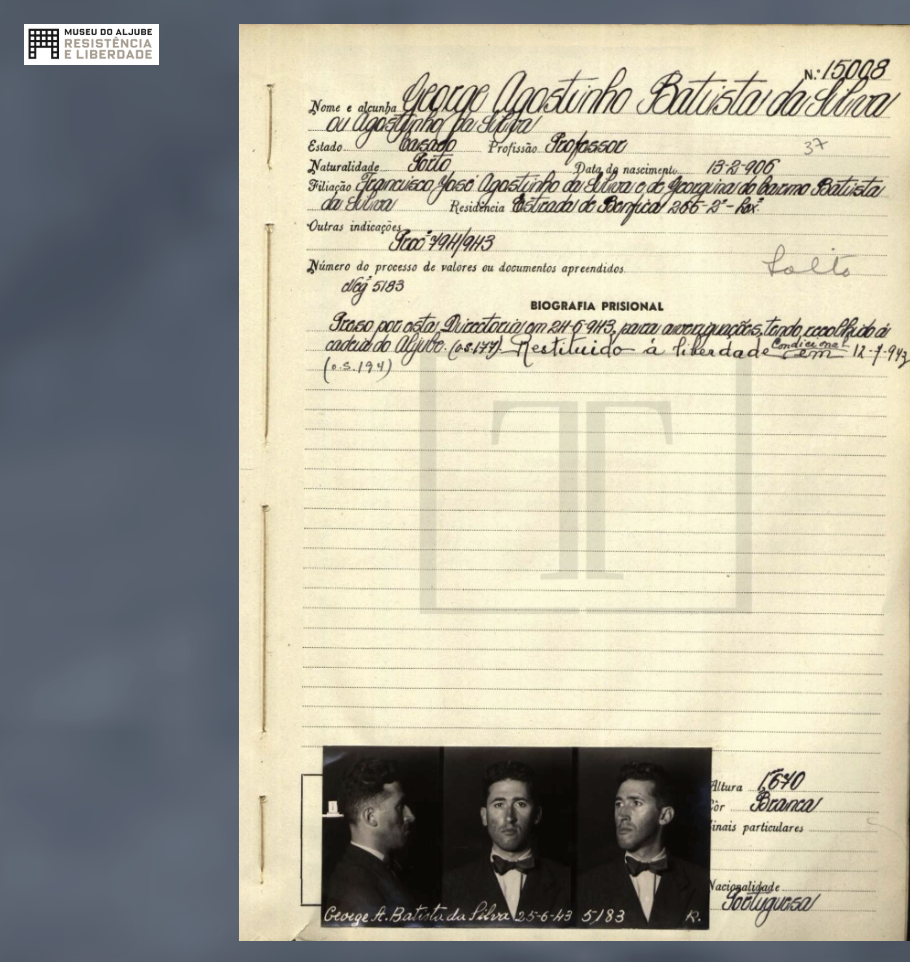 MUSEU DO ALJUBE
RESISTÊNCIA
E LIBERDADE
N.º 15008
Nome e alcunha George Agostinho Batista da Silva
ou Agostinho da Silva
Estado Casado Profissão Professor
37
Naturalidade Porto Data do nascimento 13-2-906
Filiação Francisco José Agostinho da Silva e de Georgina do Carmo Batista
da Silva Residência Estrada de Benfica 266-2º-
Outras indicações
Procº 794/943
Número do processo de valores ou documentos apreendidos
Solto
5183
BIOGRAFIA PRISIONAL
Preso por esta Directoria em 24-6-943, para averiguações, tendo recolhido à
cadeia do Aljube. (o.s.177). Restituido à liberdade Condicional em 12-7-943
(o.s.194)
TT
Altura 1,670
Côr Branca
Sinais particulares
Nacionalidade
Portuguesa
George A. Batista da Silva 25-6-43 5183 R.